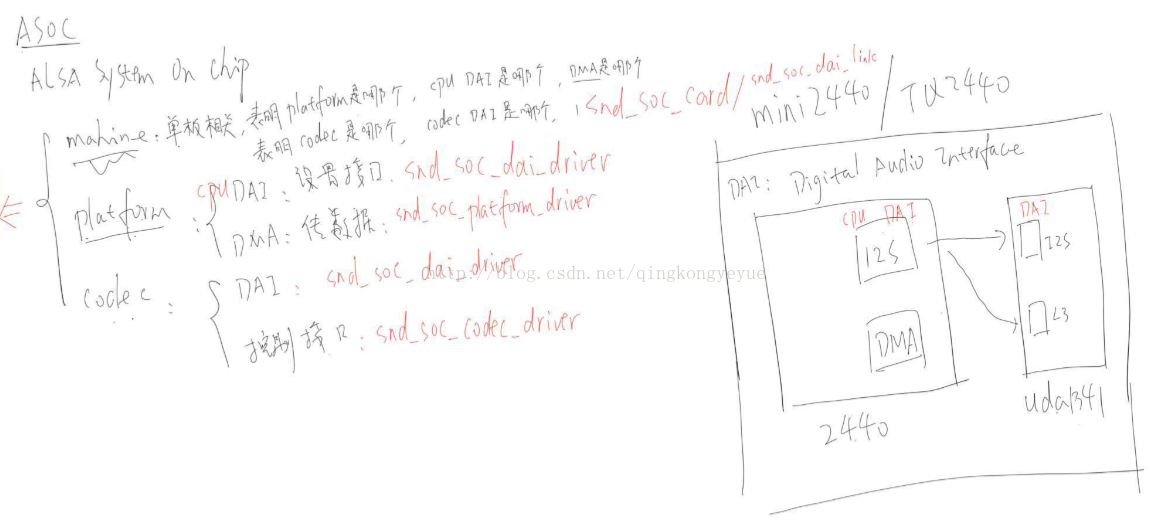 ASOC
ALSA System On chip
mahine: 单板相关, 表明platform是哪个, cpu DAI是哪个, DMA是哪个
表明codec是哪个, codec DAI是哪个, snd_soc_card/snd_soc_dai_link
platform:
cpu DAI: 设置接口. snd_soc_dai_driver
DMA: 传数据: snd_soc_platform_driver
codec:
DAI: snd_soc_dai_driver
控制接口: snd_soc_codec_driver
http://blog.csdn.net/qingkongyeyue
mini2440/TQ2440
DAI: Digital Audio Interface
CPU DAI
I2S
DMA
2440
DAI
I2S
L3
uda1341